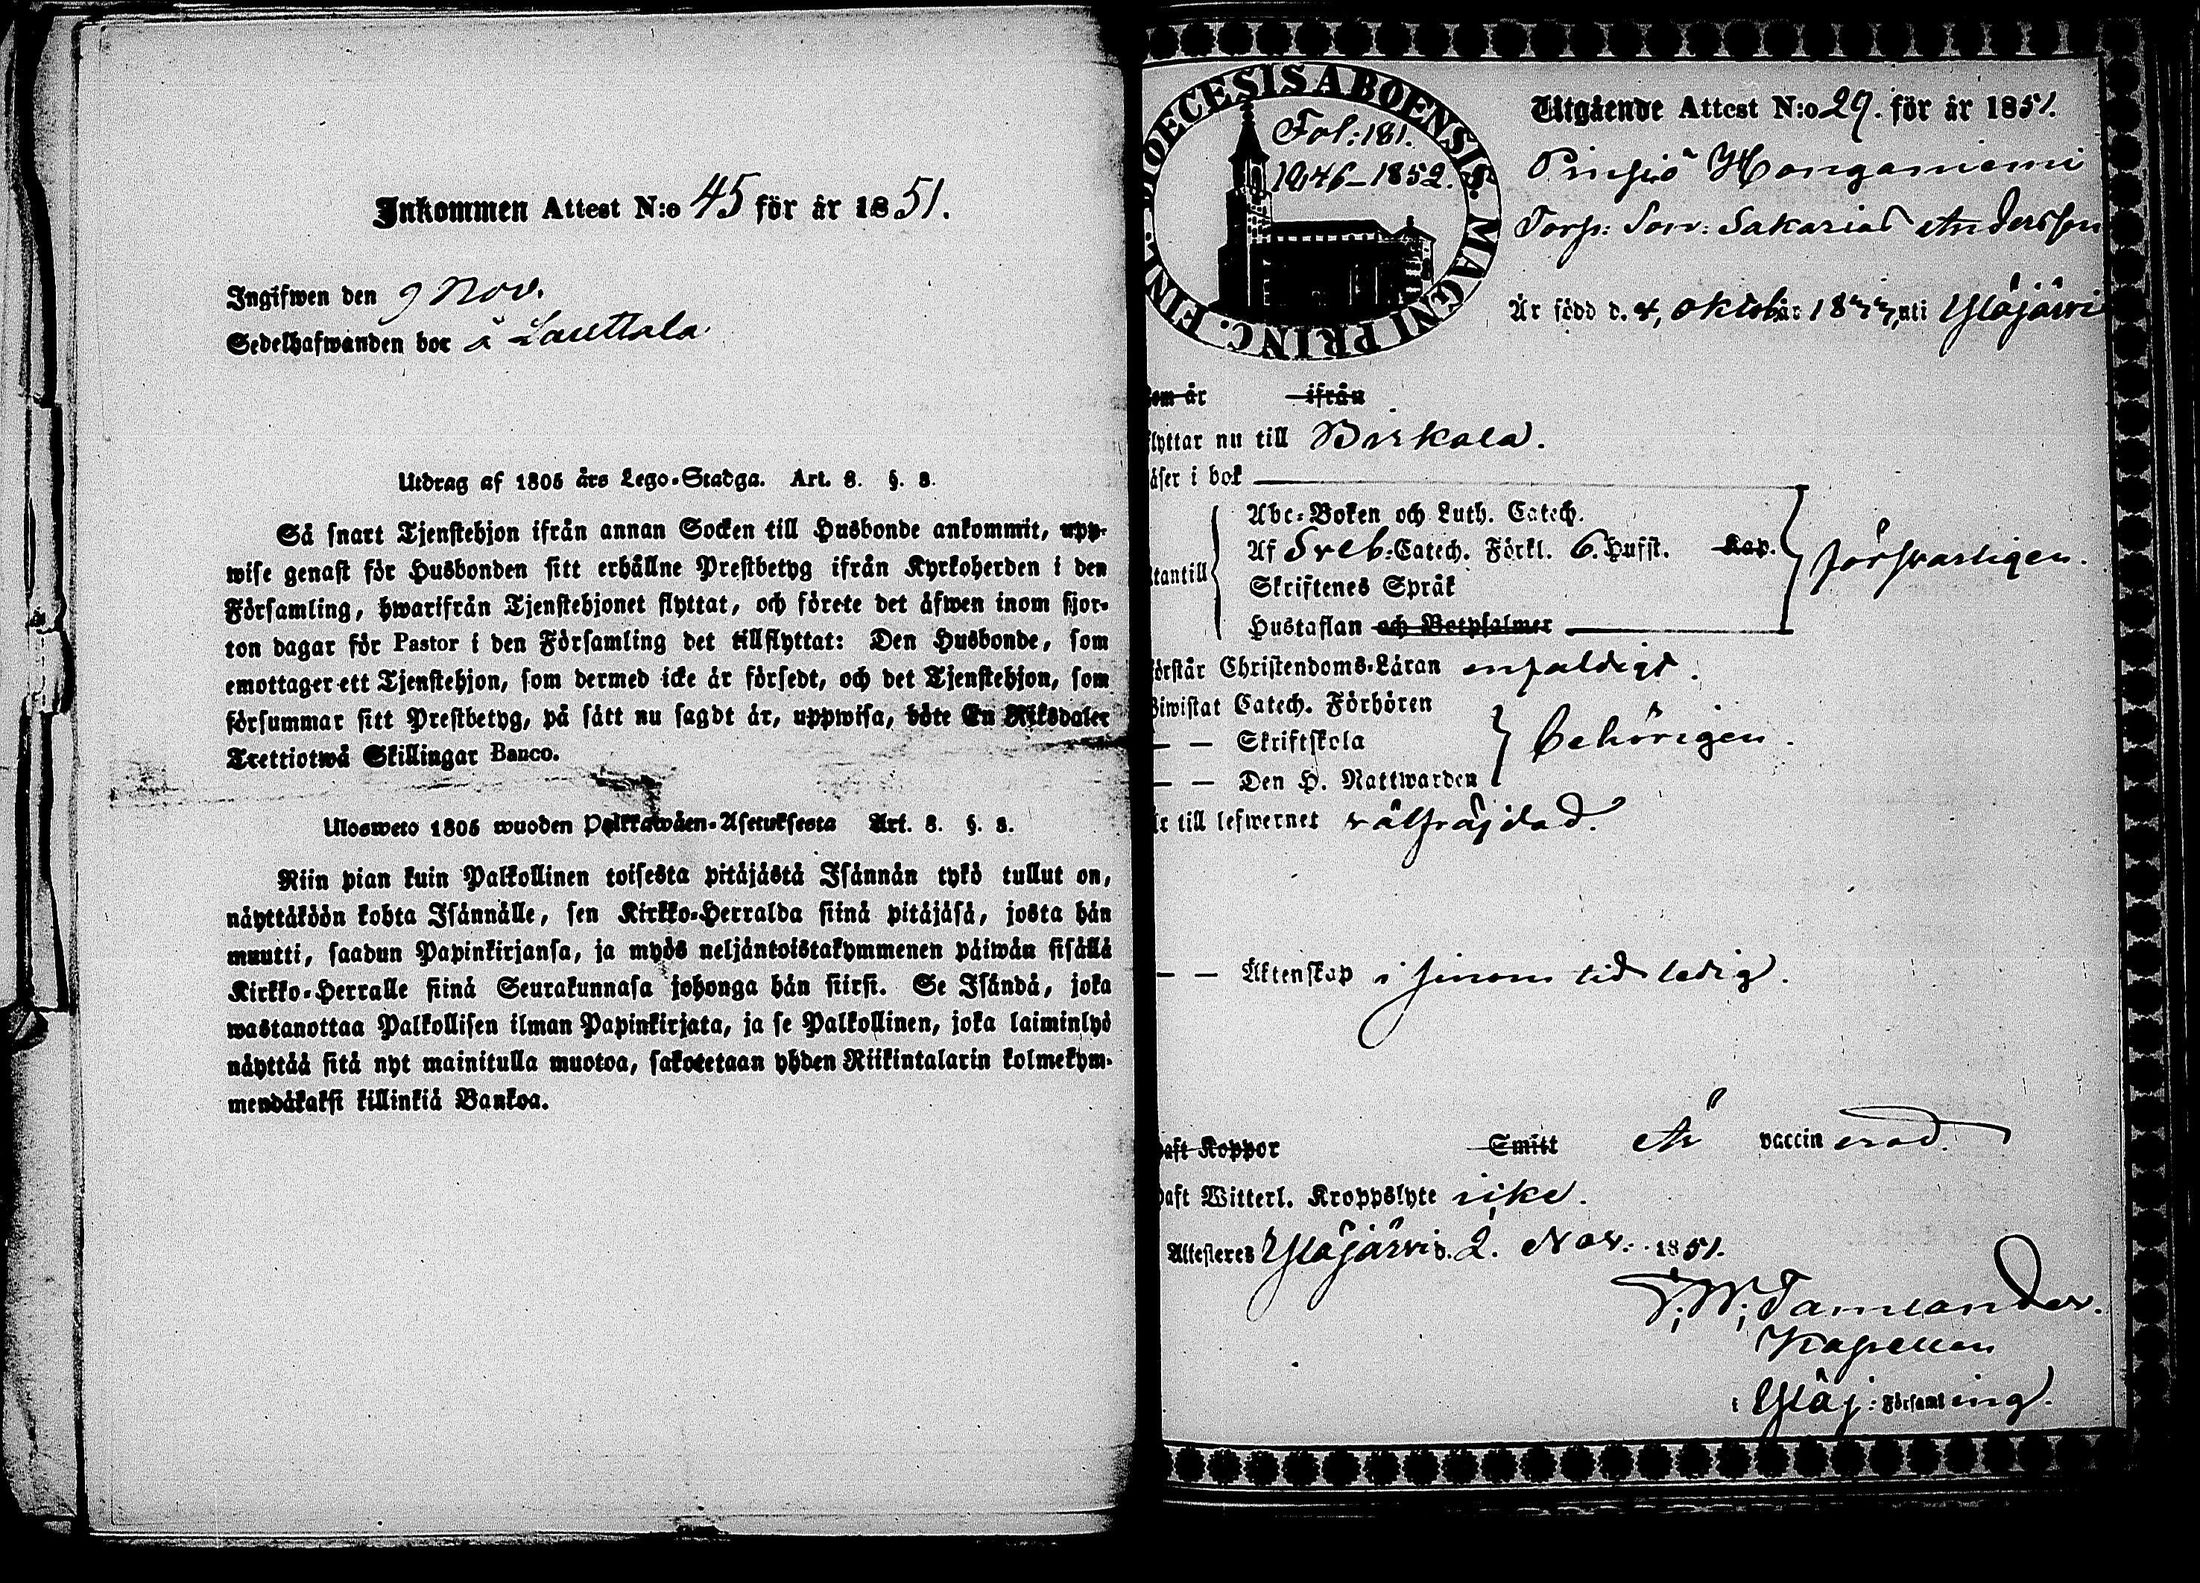 Inkommen Attest N:o 45 för år 1851.
Ingifwen den 9 Nov.
Sedelhafwanden bor å Lauttala
Utdrag af 1805 års Lego-Stadga. Art. 8. §. 8.
Så snart Tjenstehjon ifrån annan Socken till Husbonde ankommit, upp-
wise genast för Husbonden sitt erhållne Prestbetyg ifrån Kyrkoherden i den
Församling, hwarifrån Tjenstehjonet flyttat, och förete det äfwen inom fjor-
ton dagar för Pastor i den Församling det tillflyttat: Den Husbonde, som
emottager ett Tjenstehjon, som dermed icke är försedt, och det Tjenstehjon, som
försummar sitt Prestbetyg, på sätt nu sagdt är, uppwisa, böte En Riksdaler
Trettiotwå Skillingar Banco.
Ulosweto 1805 wuoden Palkkawäen-Asetuksesta Art. 8. §. 8.
Niin pian kuin Palkollinen toisesta pitäjästä Isännän tykö tullut on,
näyttäköön kohta Isännälle, sen Kirkko-Herralda siinä pitäjäsä, josta hän
muutti, saadun Papinkirjansa, ja myös neljäntoistakymmenen päiwän sisällä
Kirkko-Herralle siinä Seurakunnasa johonga hän siirsi. Se Isändä, joka
wastanottaa Palkollisen ilman Papinkirjata, ja se Palkollinen, joka laiminlyö
näyttää sitä nyt mainitulla muotoa, sakotetaan yhden Riikintalarin kolmekym-
mendäkaksi killinkiä Bankoa.
DIOECESIS ABOENSIS. MAGNI PRINC. FINL.
Fol: 181.
1846-1852.
Utgående Attest N:o 29. för år 1851.
Pinsiö Honganiemi
Torp: Son: Sakarias Andersson
Är född d. 4, oktob: år 18 uti Ylöjärvi
Som är ifrån
flyttar nu till Birkala.
läser i bok
Abc-Boken och Luth. Catech.
Af Sveb: Catech. Förkl. 6. Hufst. Kap.
försvarligen.
Utantill
Skriftenes Språk
Hustaflan och Botpsalmer
förstår Christendoms-Läran enfaldigt.
Biwistat Catech. Förhören
— — Skriftskola
behörigen.
— — Den H. Nattwarden
Är till lefwernet välfräjdad.
— — Äktenskap i sinom tid ledig.
Haft Koppor Smitt Är vaccinerad.
Haft Witterl. Kroppslyte icke.
Attesteres Ylöjärvi d. 2. Nov. 1851.
Tamlander.
Kapellan
i Ylöj: Församling.